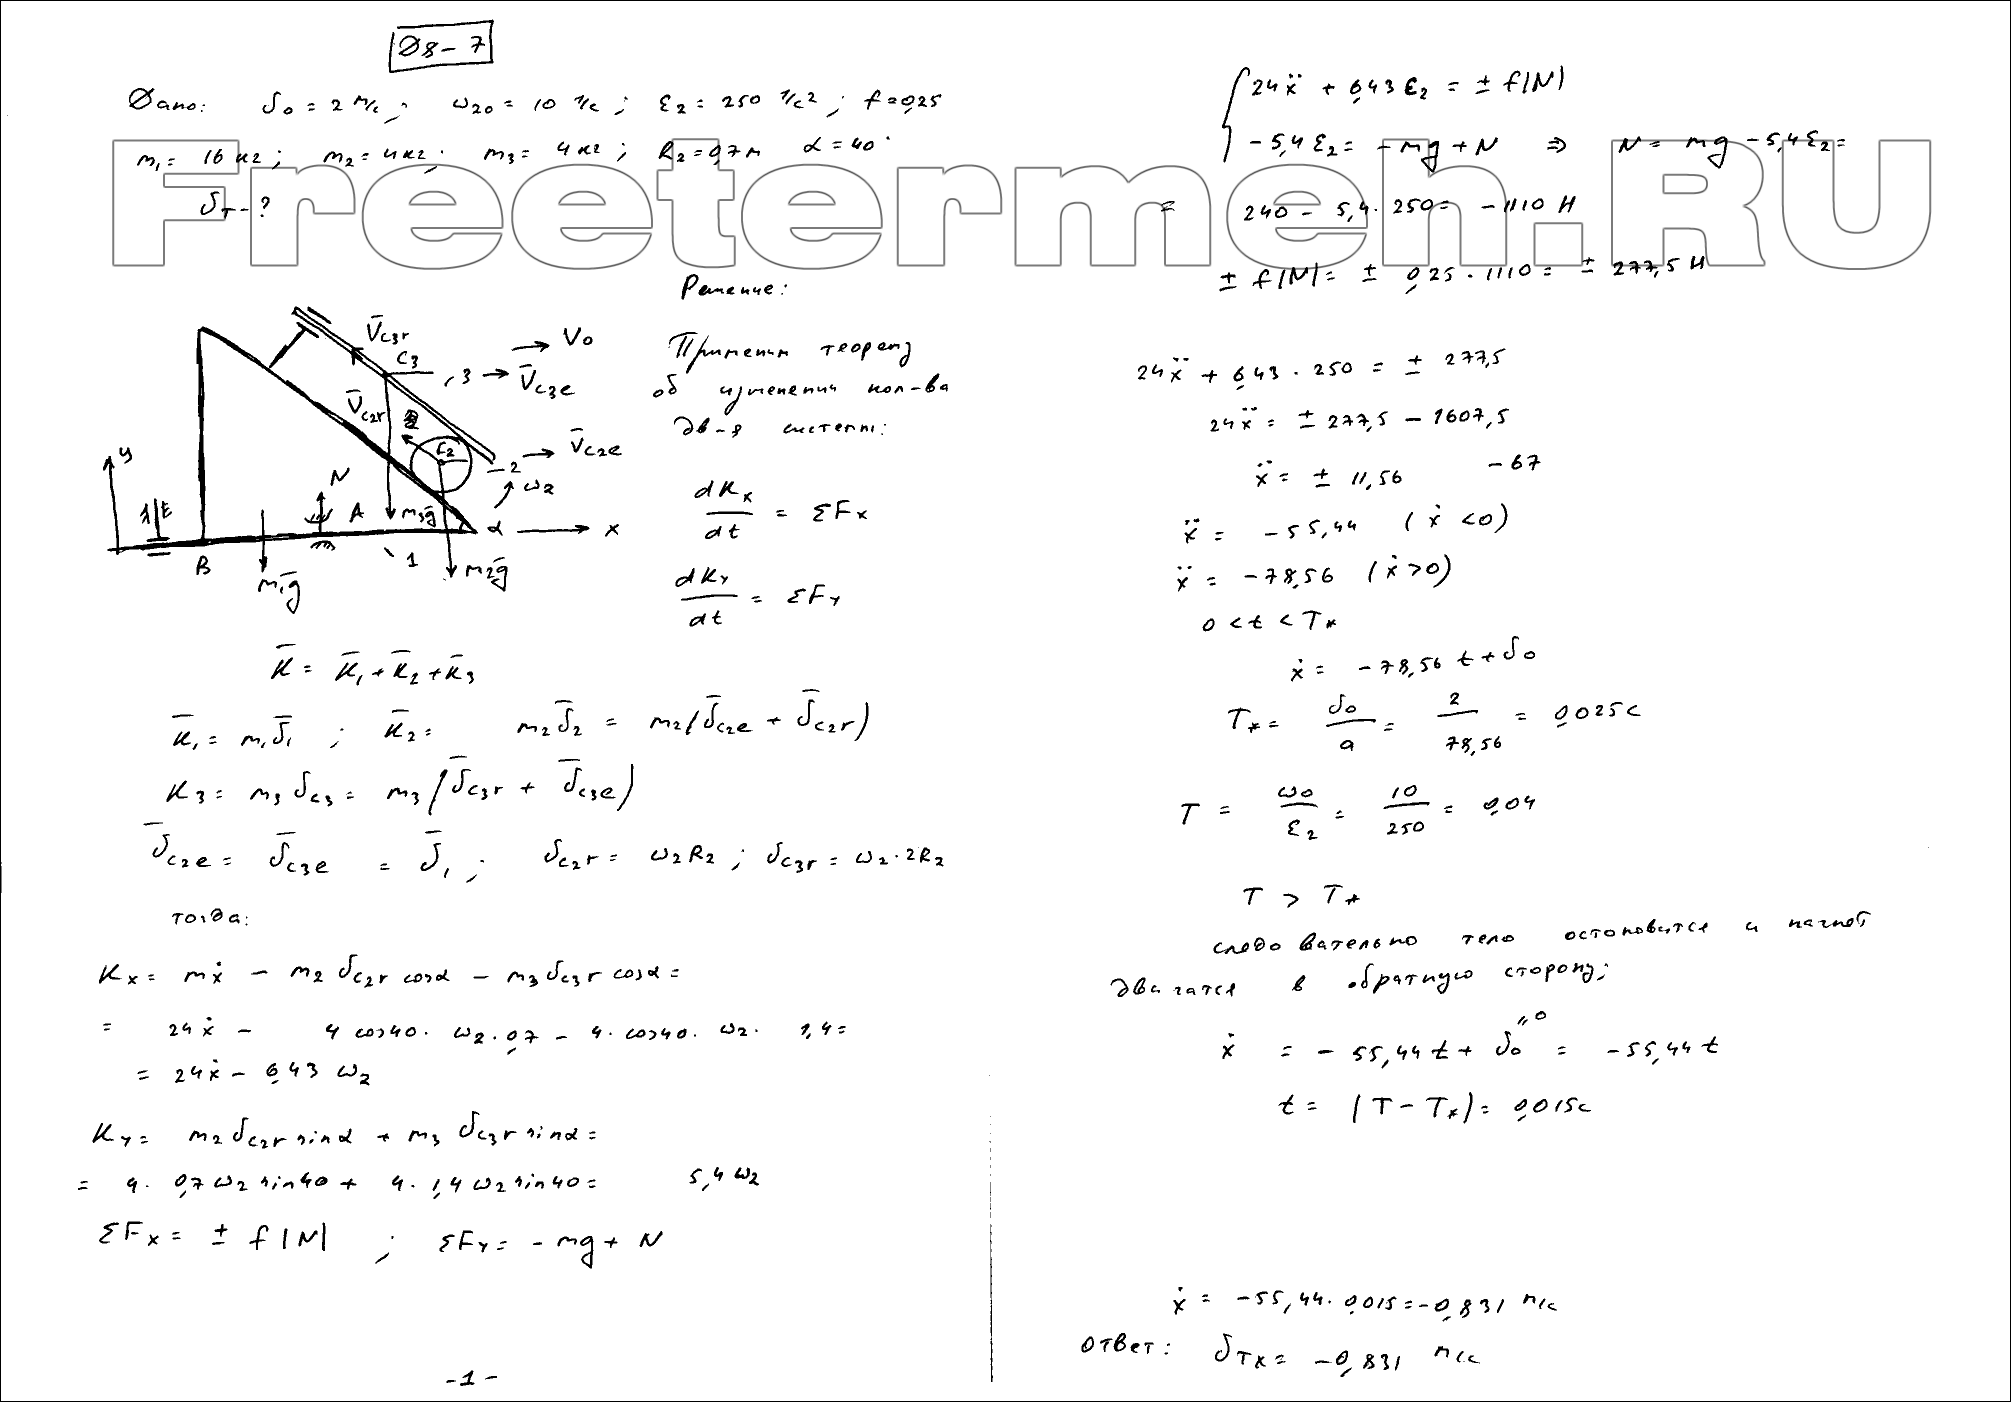 D8-7
Дано: v₀ = 2 м/с ; ω₂₀ = 10 1/с ; ε₂ = 250 1/с² ; f = 0,25
m₁ = 16 кг ; m₂ = 4 кг ; m₃ = 4 кг ; R₂ = 0,7 м α = 40°
v_T - ?
Freetermeh.RU
Решение:
V̄c3r
C3
V0
3
V̄c3e
V̄c2r
C2
V̄c2e
2
ω2
y
N
A
m3ḡ
α
x
B
1
m1ḡ
m2ḡ
Применим теорему
об изменении кол-ва
дв-я системы:
dKx/dt = ΣFx
dKy/dt = ΣFy
K̄ = K̄₁ + K̄₂ + K̄₃
K̄₁ = m₁v̄₁ ; K̄₂ = m₂v̄₂ = m₂(v̄c2e + v̄c2r)
K₃ = m₃vc3 = m₃(v̄c3r + v̄c3e)
v̄c2e = v̄c3e = v̄₁ ; vc2r = ω₂R₂ ; vc3r = ω₂·2R₂
тогда:
Kx = mẋ - m₂vc2r cosα - m₃vc3r cosα =
= 24ẋ - 4 cos40 · ω₂ · 0,7 - 4 · cos40 · ω₂ · 1,4 =
= 24ẋ - 6,43 ω₂
Ky = m₂vc2r sinα + m₃vc3r sinα =
= 4 · 0,7ω₂ sin40 + 4 · 1,4ω₂ sin40 = 5,4ω₂
ΣFx = ± f|N| ; ΣFy = - mg + N
-1-
24ẍ + 6,43ε₂ = ± f|N|
- 5,4ε₂ = - mg + N ⇒ N = mg - 5,4ε₂ =
= 240 - 5,4 · 250 = -1110 Н
± f|N| = ± 0,25 · 1110 = ± 277,5 Н
24ẍ + 6,43 · 250 = ± 277,5
24ẍ = ± 277,5 - 1607,5
ẍ = ± 11,56 - 67
ẍ = -55,44 (ẋ < 0)
ẍ = -78,56 (ẋ > 0)
0 < t < T*
ẋ = -78,56 t + v₀
T* = v₀/a = 2/78,56 = 0,025 с
T = ω₀/ε₂ = 10/250 = 0,04
T > T*
следовательно тело остановится и начнёт
двигатся в обратную сторону;
ẋ = -55,44 t + v₀ ″0 = -55,44 t
t = (T - T*) = 0,015 с
ẋ = -55,44 · 0,015 = -0,831 м/с
Ответ: v_Tx = -0,831 м/с